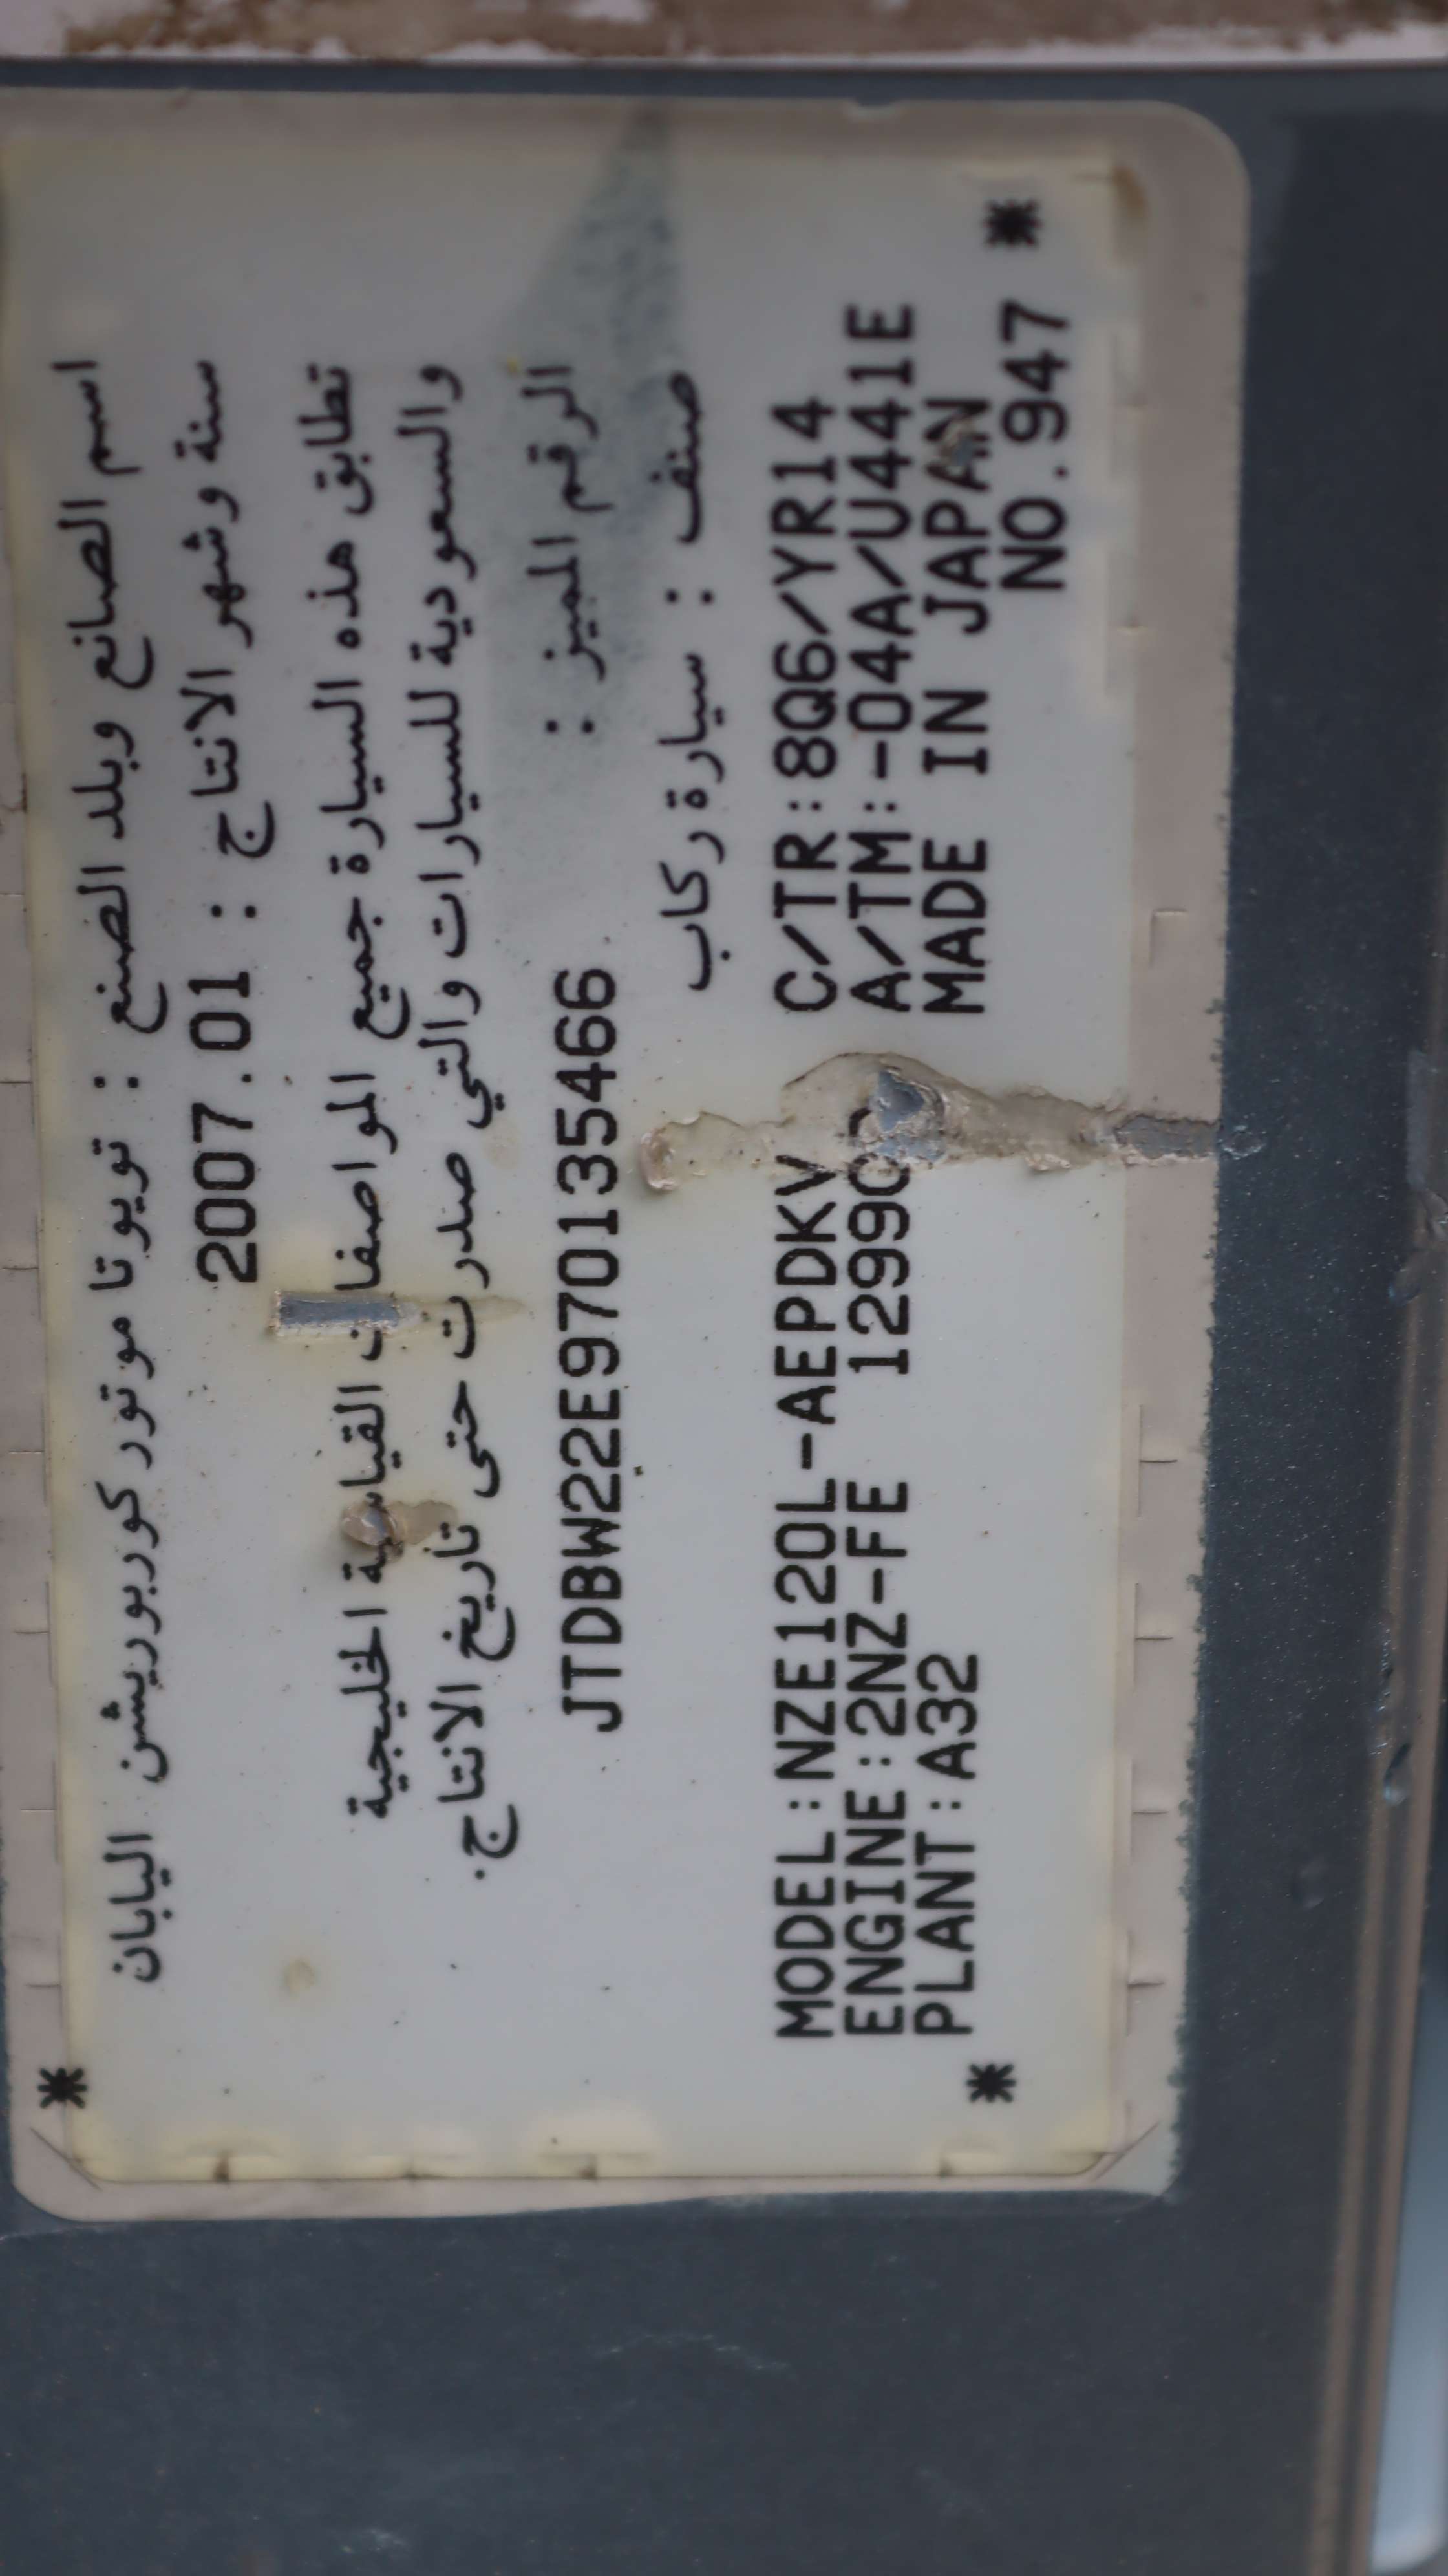 اسم الصانع وبلد الصنع : تويوتا موتور كوربوريشن اليابان
سنة وشهر الانتاج : 2007.01
تطابق هذه السيارة جميع المواصفات القياسية الخليجية
والسعودية للسيارات والتي صدرت حتى تاريخ الانتاج.
الرقم المميز :
JTDBW22E970135466
صنف : سيارة ركاب
MODEL:NZE120L-AEPDKV C/TR:8Q6/YR14
ENGINE:2NZ-FE A/TM:-04A/U441E
PLANT:A32 MADE IN JAPAN
NO.947